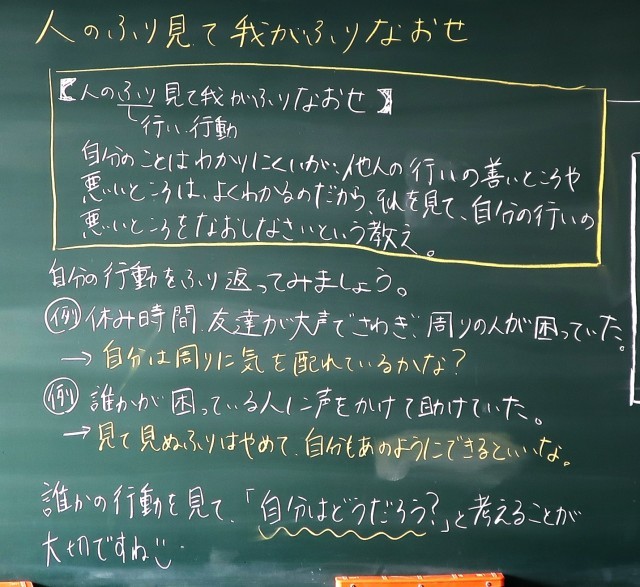 人のふり見て我がふりなおせ
【人のふり見て我がふりなおせ】
行い、行動
自分のことはわかりにくいが、他人の行いの善いところや
悪いところは、よくわかるのだから、それを見て、自分の行いの
悪いところをなおしなさいという教え。
自分の行動をふり返ってみましょう。
例 休み時間、友達が大声でさわぎ、周りの人が困っていた。
→自分は周りに気を配れているかな?
例 誰かが困っている人に声をかけて助けていた。
→見て見ぬふりはやめて、自分もあのようにできるといいな。
誰かの行動を見て、「自分はどうだろう?」と考えることが
大切ですね